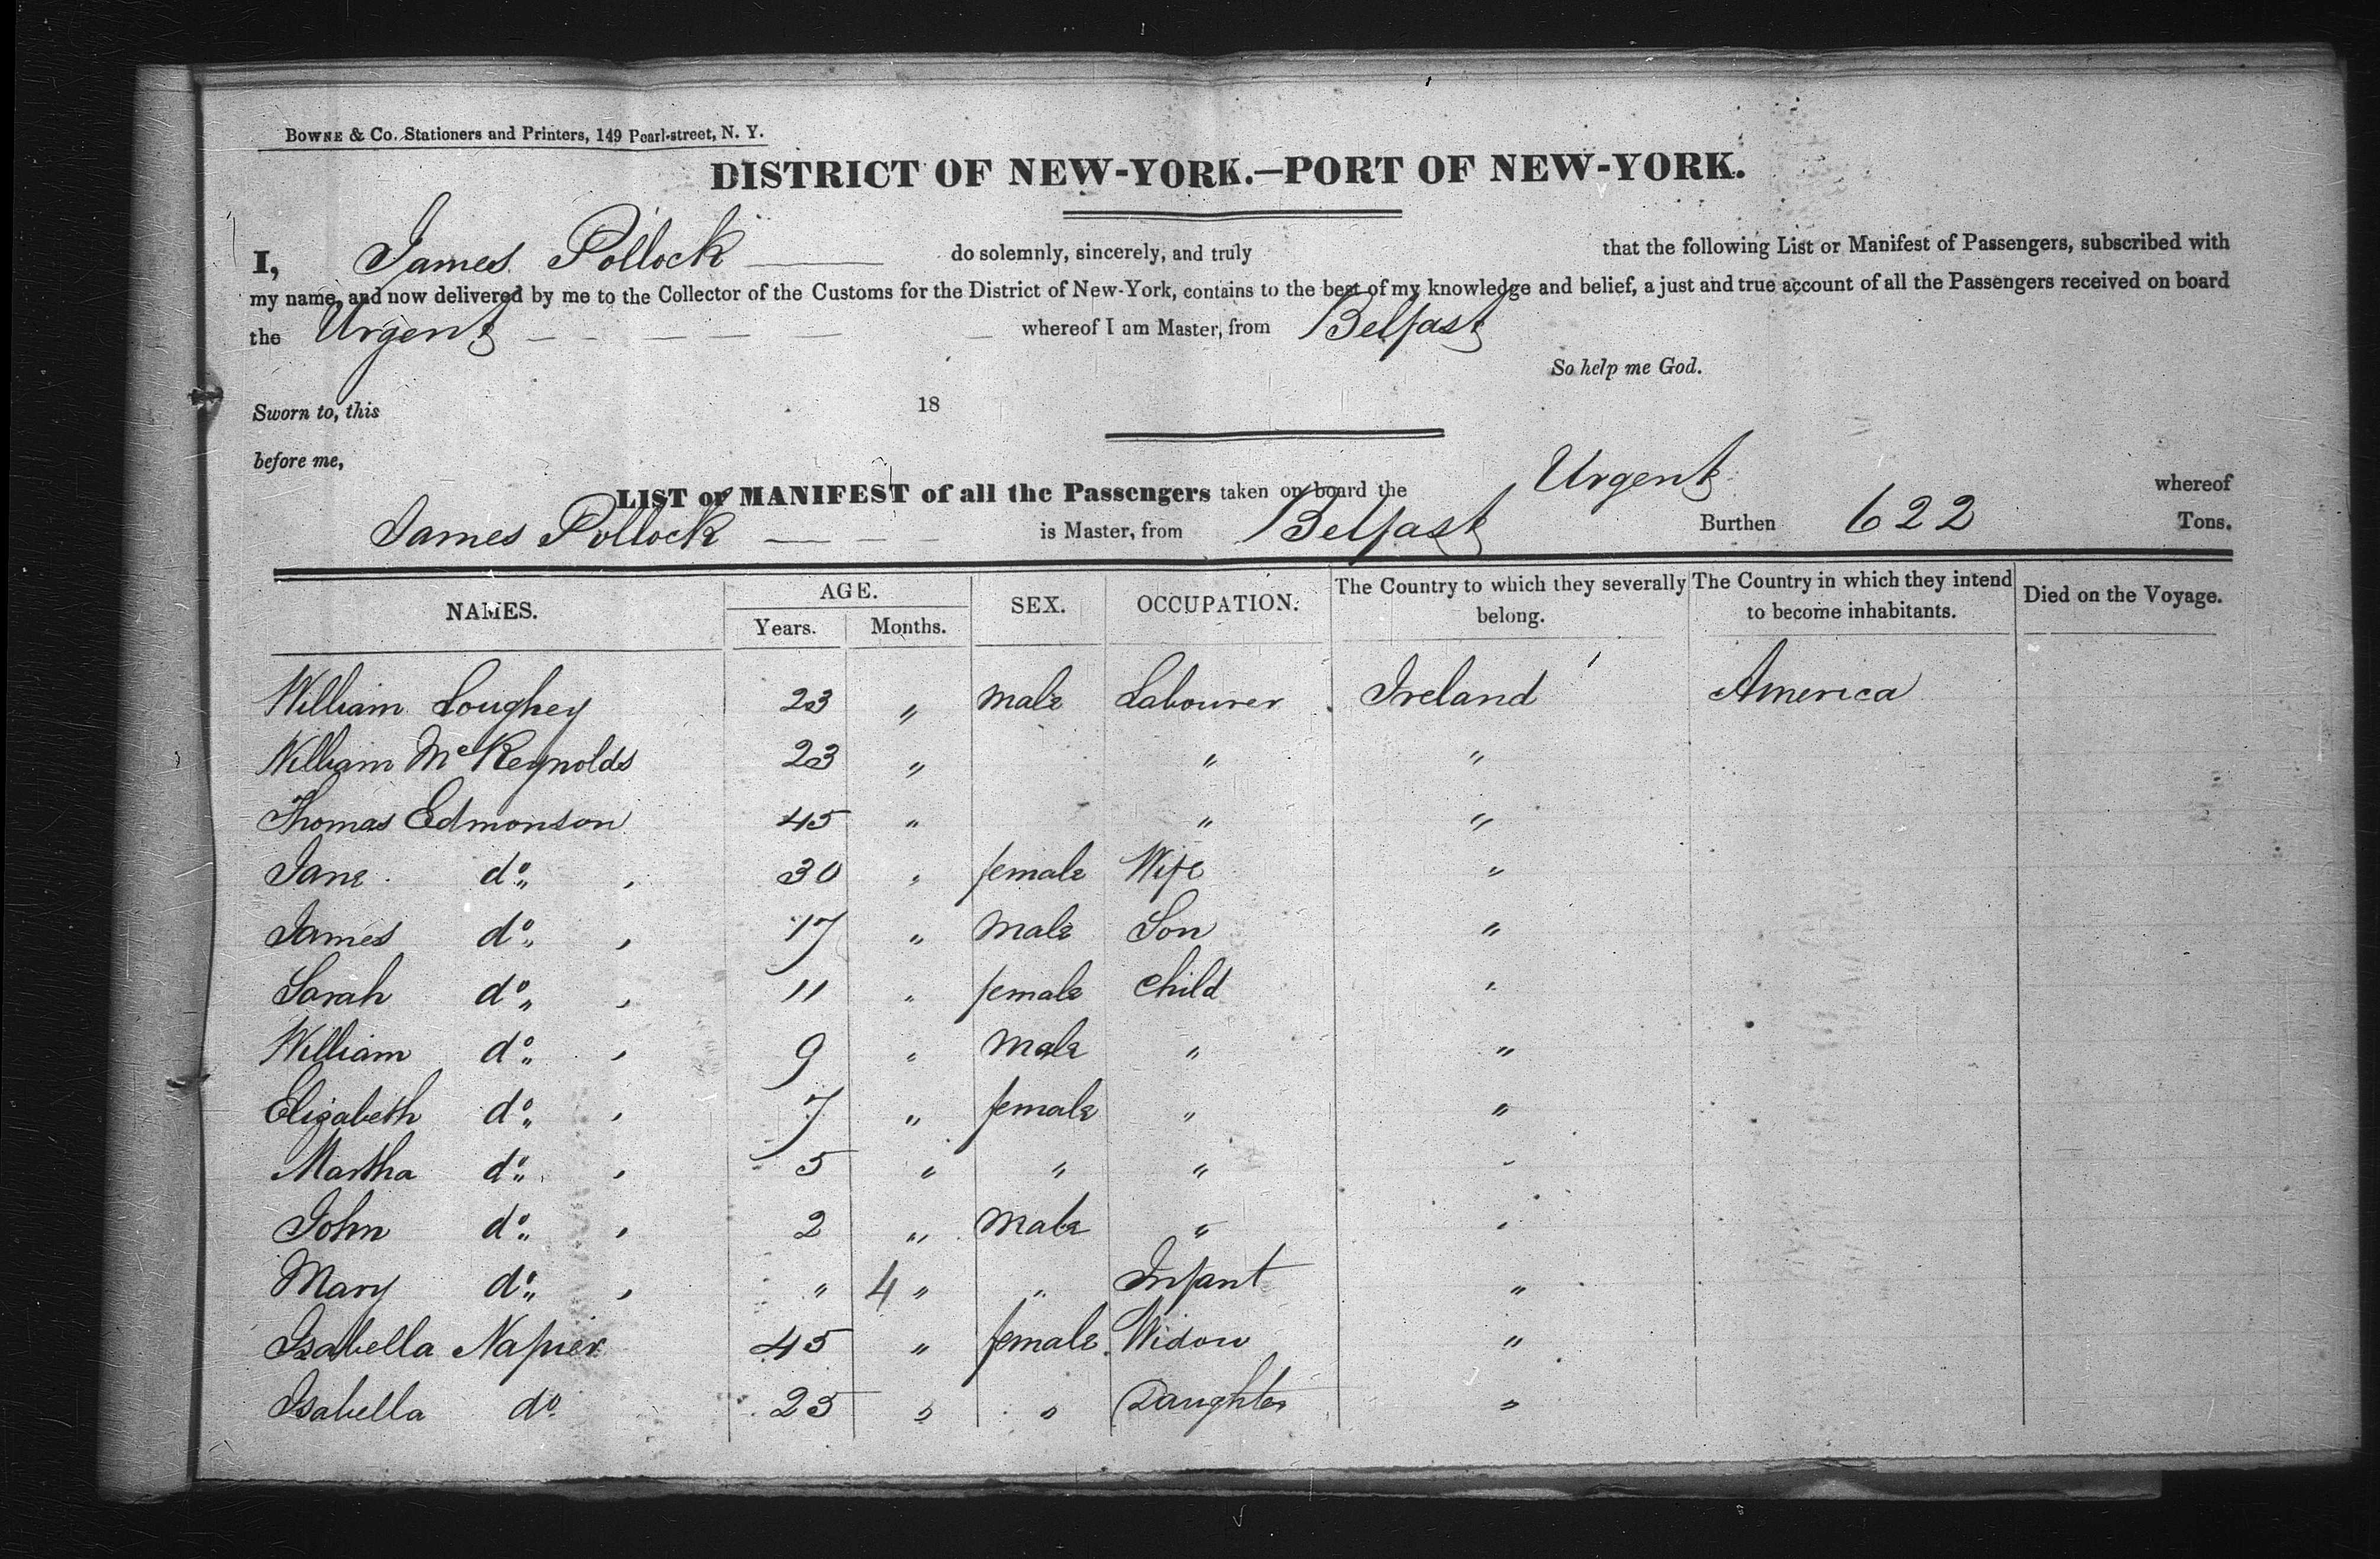 BOWNE & CO. Stationers and Printers, 149 Pearl-street, N. Y.
DISTRICT OF NEW-YORK.—PORT OF NEW-YORK.
I, James Pollock do solemnly, sincerely, and truly that the following List or Manifest of Passengers, subscribed with
my name, and now delivered by me to the Collector of the Customs for the District of New-York, contains to the best of my knowledge and belief, a just and true account of all the Passengers received on board
the Urgent whereof I am Master, from Belfast
So help me God.
Sworn to, this 18
before me,
LIST or MANIFEST of all the Passengers taken on board the Urgent whereof
James Pollock is Master, from Belfast Burthen 622 Tons.
NAMES. AGE. Years. Months. SEX. OCCUPATION. The Country to which they severally belong. The Country in which they intend to become inhabitants. Died on the Voyage.
William Loughey 23 " male Labourer Ireland America
William McReynolds 23 " " "
Thomas Edmonson 45 " " "
Jane do 30 " female Wife "
James do 17 " male Son "
Sarah do 11 " female child "
William do 9 " male " "
Elizabeth do 7 " female " "
Martha do 5 " " " "
John do 2 " male " "
Mary do " 4 " " Infant "
Isabella Napier 45 " female Widow "
Isabella do 25 " " Daughter "